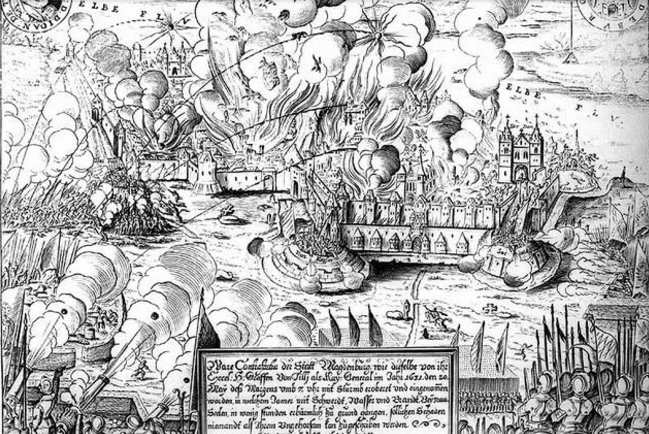 ELBE FLV
DEBVRG
ELBE FLV
Ware Contrafactur der Statt Magdenburg, wie dieselbe von ihr
Excell: H: Graffen Von Tilly als Kay: General im Jahr 1631. den 20
May deß Morgens umb 7. uhr mit Sturmb erobert und eingenommen
worden, in welchem James mit Schwerdt, Wasser und Brandt
Seelen, in wenig stunden erbärmlich zu grund gangen, solchen Schaden
niemandt als Ihrem Ungehorsam kan zugeschriben werden